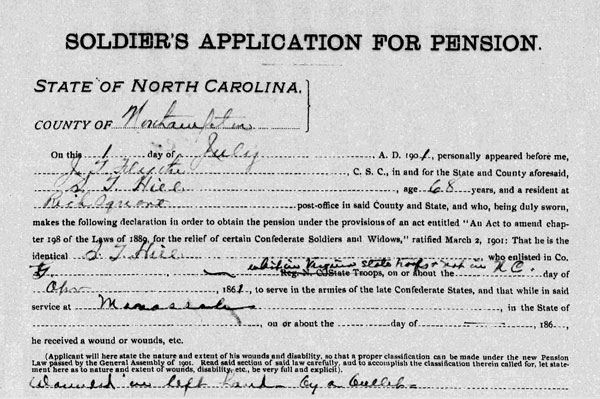 SOLDIER'S APPLICATION FOR PENSION.
STATE OF NORTH CAROLINA,
COUNTY OF Northampton
On this 1 day of July A. D. 1901, personally appeared before me,
J. T. Flythe C. S. C., in and for the State and County aforesaid,
S. T. Hill age 68 years, and a resident at
Rich Square post-office in said County and State, and who, being duly sworn,
makes the following declaration in order to obtain the pension under the provisions of an act entitled "An Act to amend chap-
ter 198 of the Laws of 1889, for the relief of certain Confederate Soldiers and Widows," ratified March 2, 1901: That he is the
identical S. T. Hill who enlisted in Co.
G. Reg. N. C. State Troops, on or about the day of
1861, to serve in the armies of the late Confederate States, and that while in said
service at Manassas in the State of
, on or about the day of , 186 ,
he received a wound or wounds, etc.
(Applicant will here state the nature and extent of his wounds and disability, so that a proper classification can be made under the new Pension
Law passed by the General Assembly of 1901. Read said section of law carefully, and to accomplish the classification therein called for, let state-
ment here as to nature and extent of wounds, disability, etc., be very full and explicit).
Wounded in left hand by a bullet